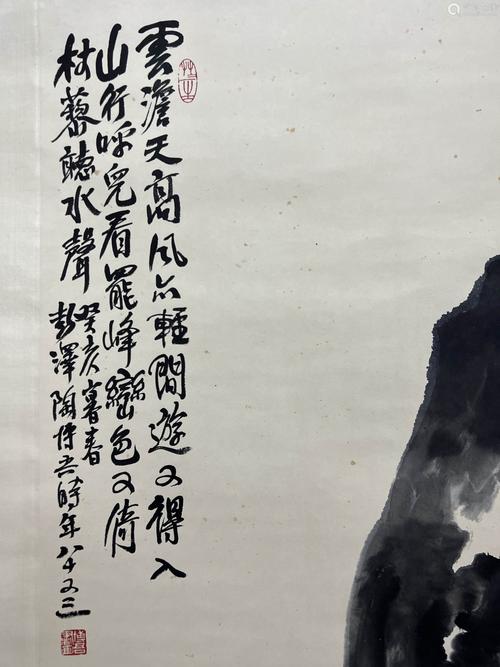 雲澹天高風亦輕間遊又得入
山行呼兒看罷峰巒色又倚
杖藜聽水聲
癸亥暮春
彭澤陶博吾時年八十又三